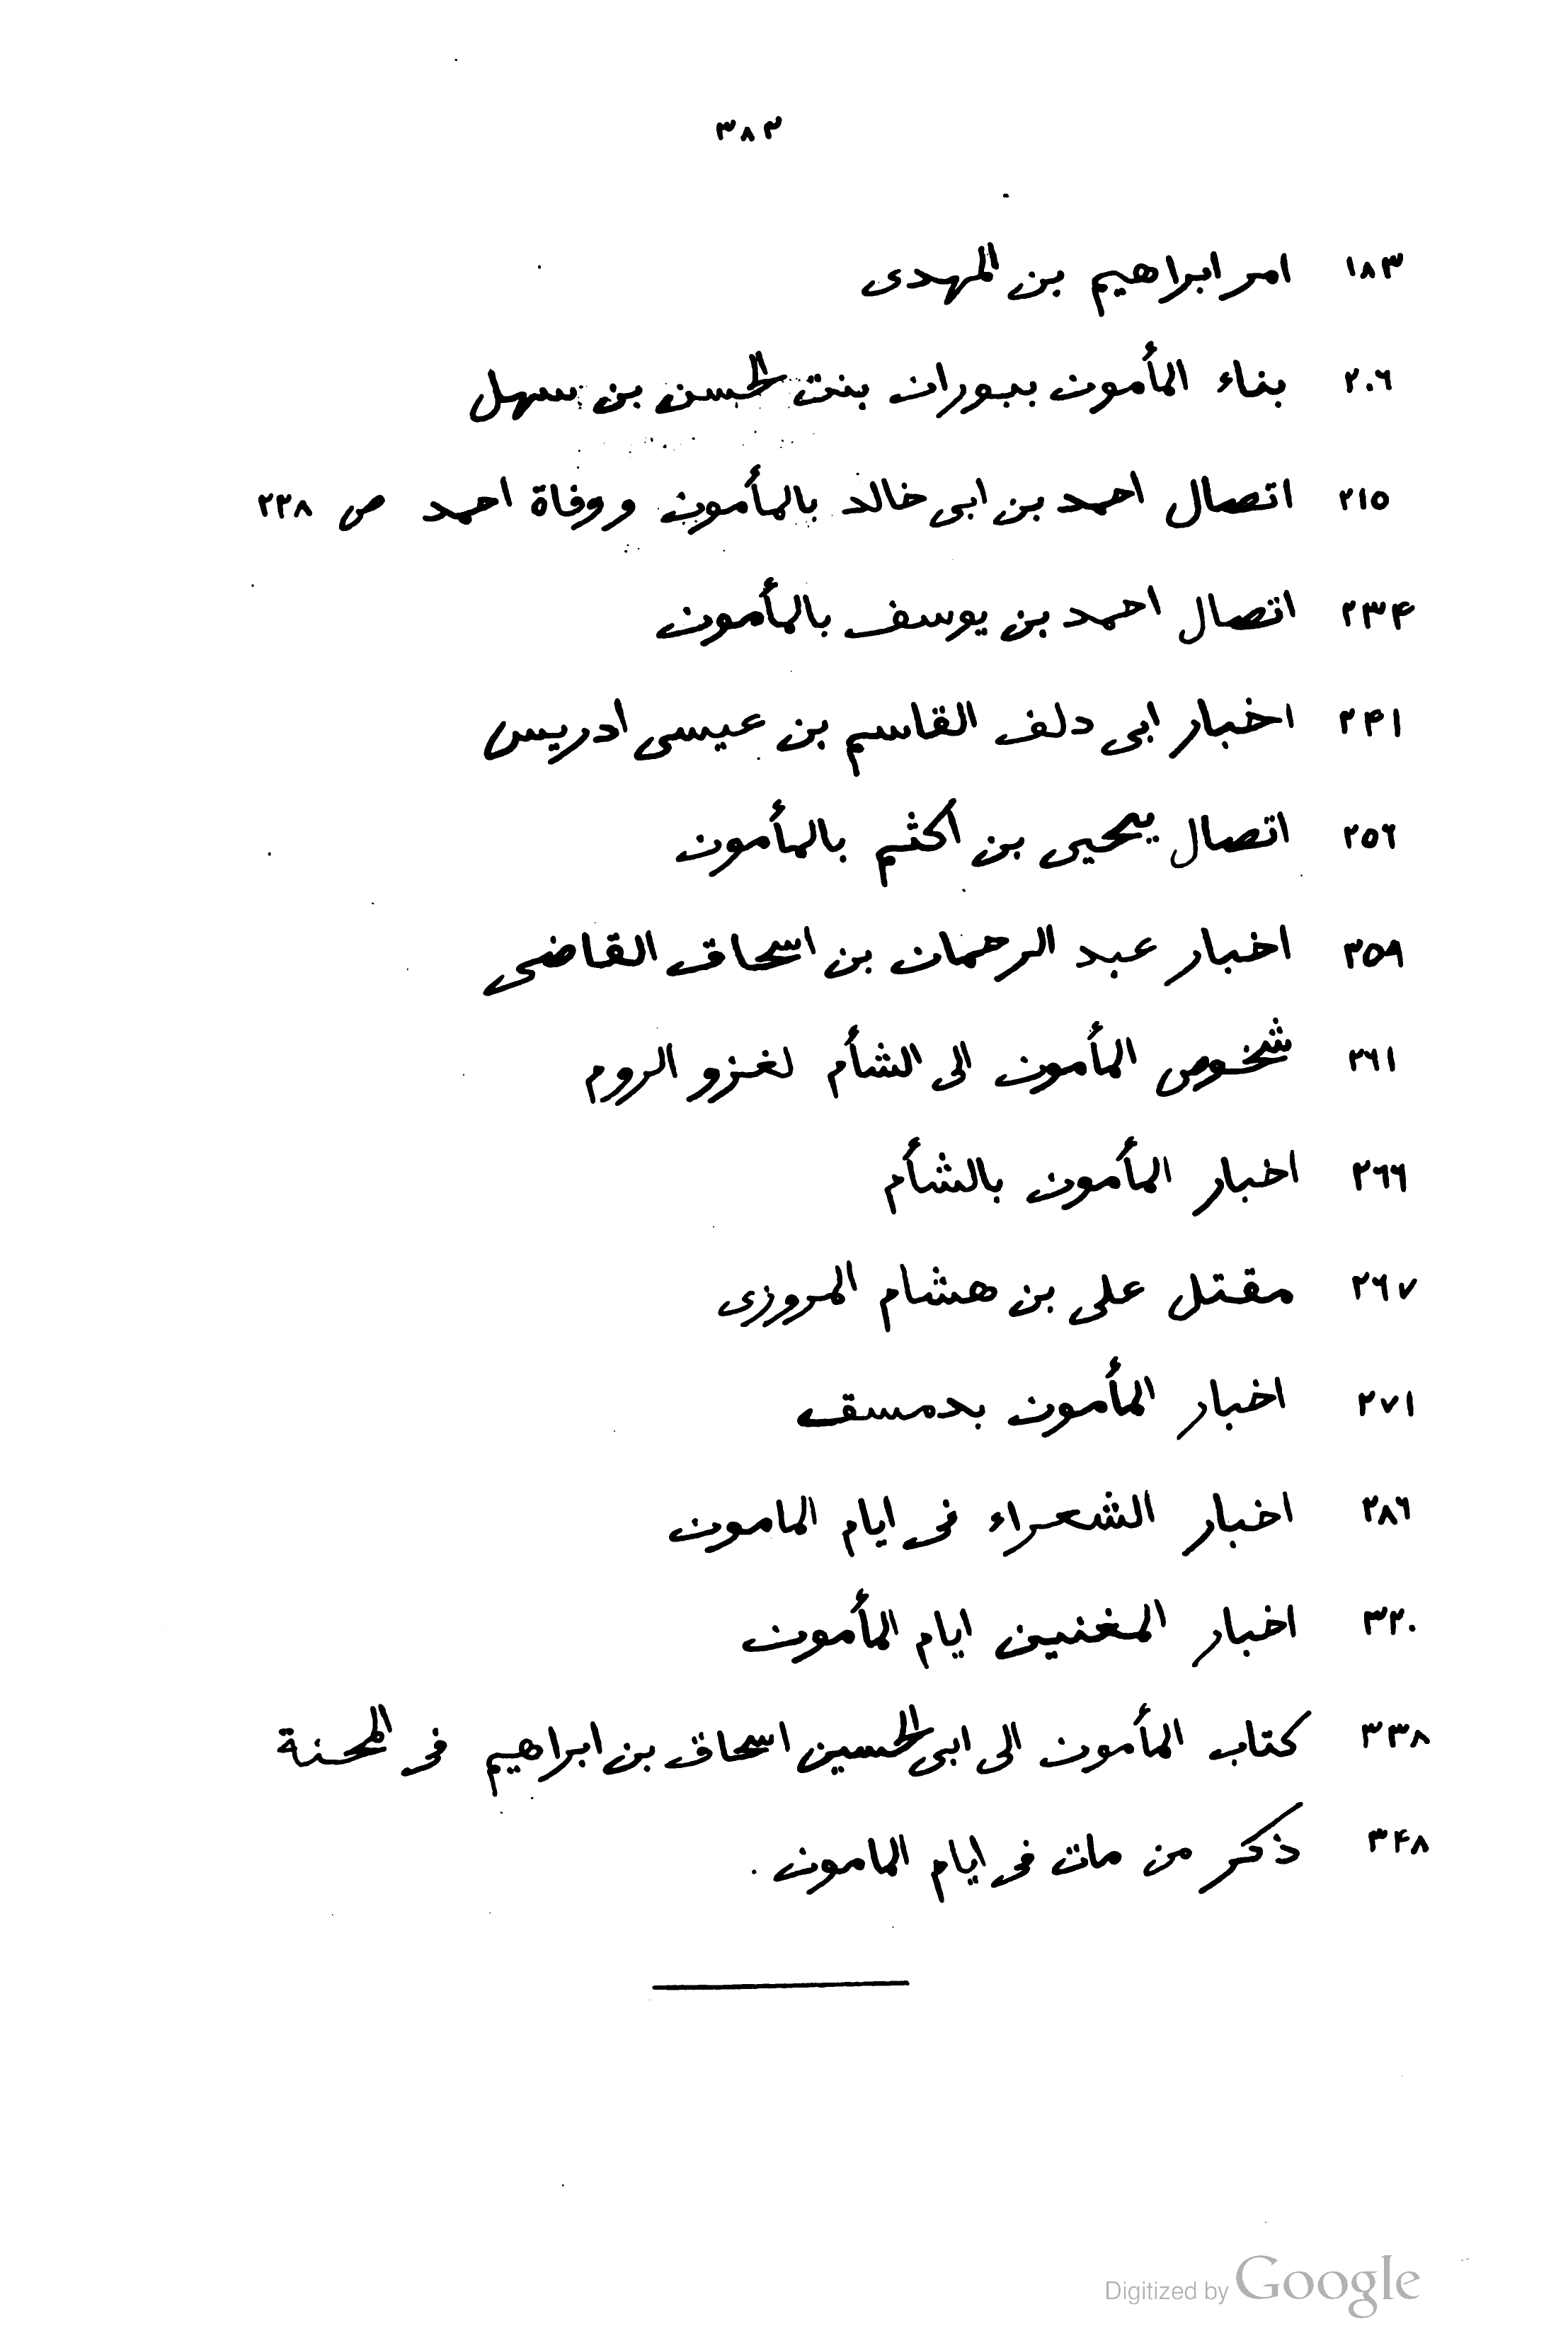 ٣٨٢
١٨٣ امر ابراهيم بن المهدى
٢٠٦ بناء المأمون ببوران بنت الحسن بن سهل
٢١٥ اتصال احمد بن ابى خالد بالمأمون ووفاة احمد ص ٢٢٨
٢٣۴ اتصال احمد بن يوسف بالمأمون
٢۴١ اخبار ابى دلف القاسم بن عيسى ادريس
٢٥٦ اتصال يحيى بن اكثم بالمأمون
٢٥٩ اخبار عبد الرحمان بن اسحاق القاضى
٢٦١ شخوص المأمون الى الشأم لغزو الروم
٢٦٦ اخبار المأمون بالشأم
٢٦٧ مقتل على بن هشام المروزى
٢٧١ اخبار المأمون بدمسق
٢٨٦ اخبار الشعراء فى ايام المامون
٣٢٠ اخبار المغنين ايام المأمون
٣٣٨ كتاب المأمون الى ابى الحسين اسحاق بن ابراهيم فى المحنة
٣۴٨ ذكر من مات فى ايام المامون .
Digitized by Google